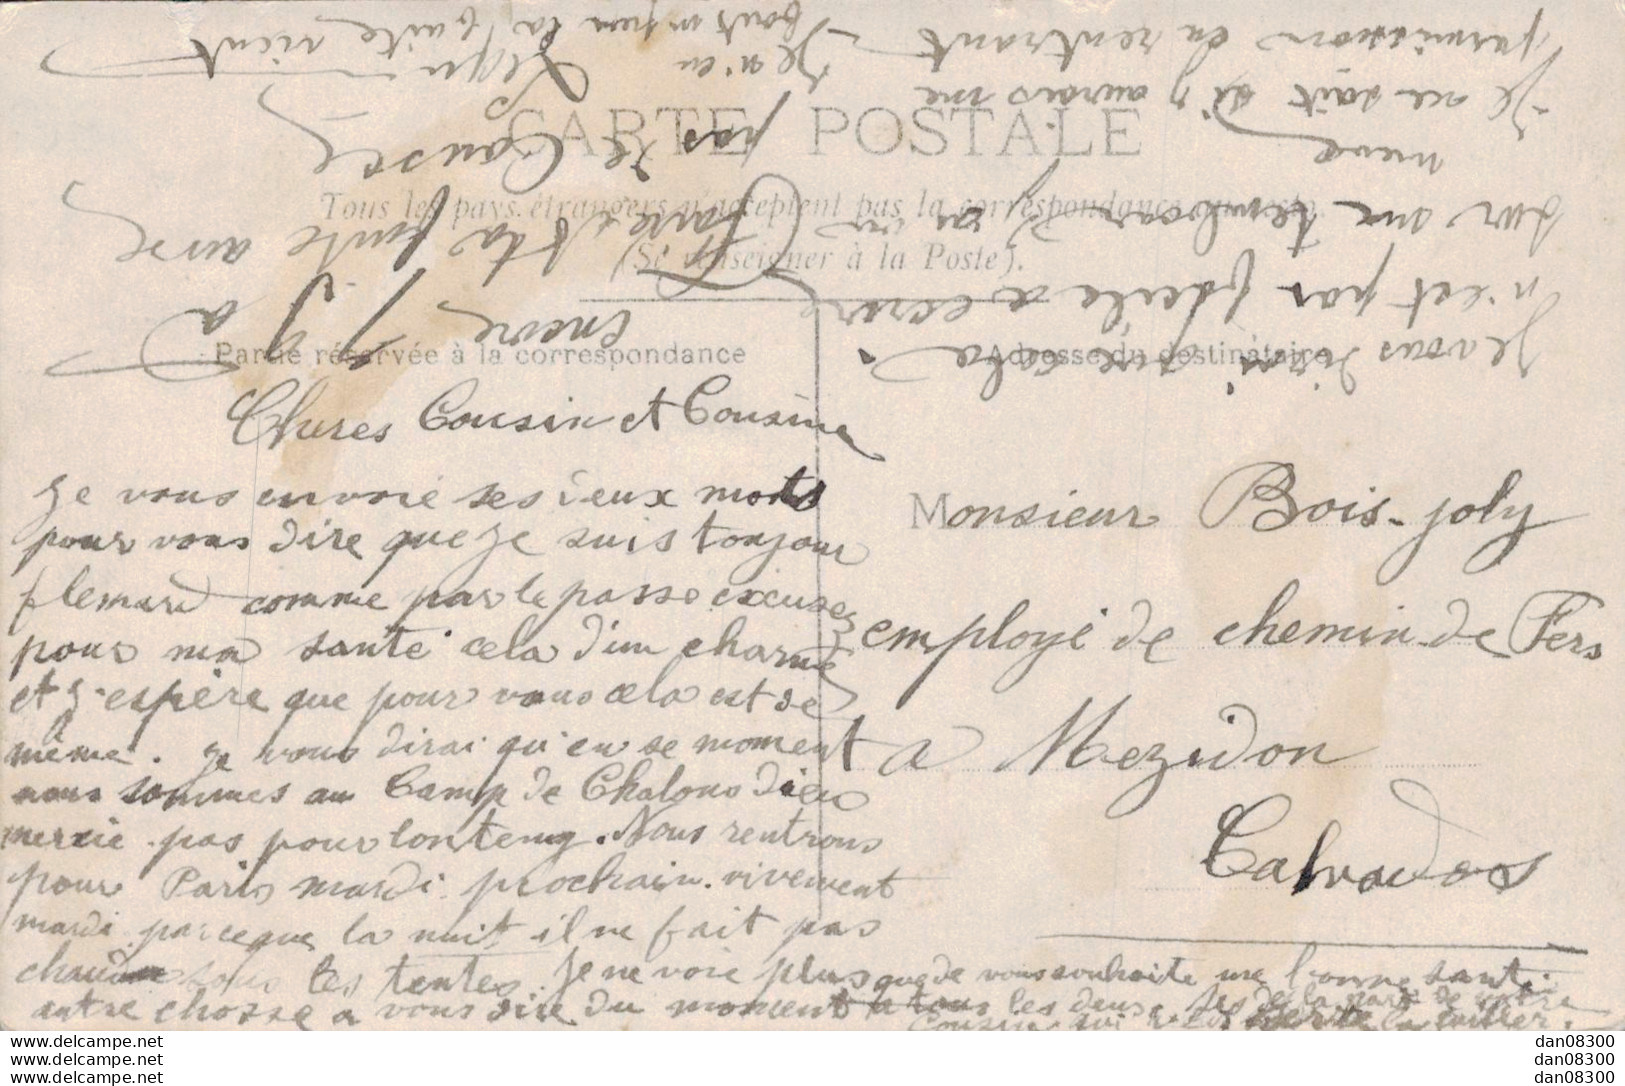 CARTE POSTALE
Tous les pays étrangers n'acceptent pas la correspondance au recto.
(Se renseigner à la Poste).
Partie réservée à la correspondance
Adresse du destinataire
Cheres Cousin et Cousine
je vous envoie ses deux mots
pour vous dire que je suis toujour
flemard comme par le passe excusez
pour ma santé cela d'un charme
et j'espère que pour vous cela est de
même. je vous dirai qu'en se moment
nous sommes au Camp de Chalons dieu
mercie pas pour lontemp. Nous rentrons
pour Paris mardi prochain. vivement
mardi parceque la nuit il ne fait pas
chaud sous les tentes. je ne voie plus que de vous souhaite une bonne santé
autre chosse a vous dire du moment a tous les deux. de la part de votre
Cousin qui
Monsieur Bois-joly
employé de chemin de Fers
a Mezidon
Calvados
Je vous dirai que cela
n'est pas facile a ecrire
sur une
je ne sait si j'aurais une
permission en rentrant
encre
il y a
la fuite
pas de
Je n'en
la fuite vient